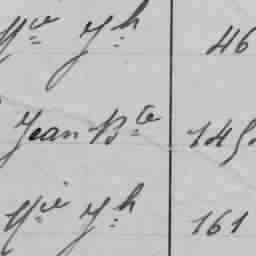 Mie Jh 46
Jean Bte 145
Mie Jh 161